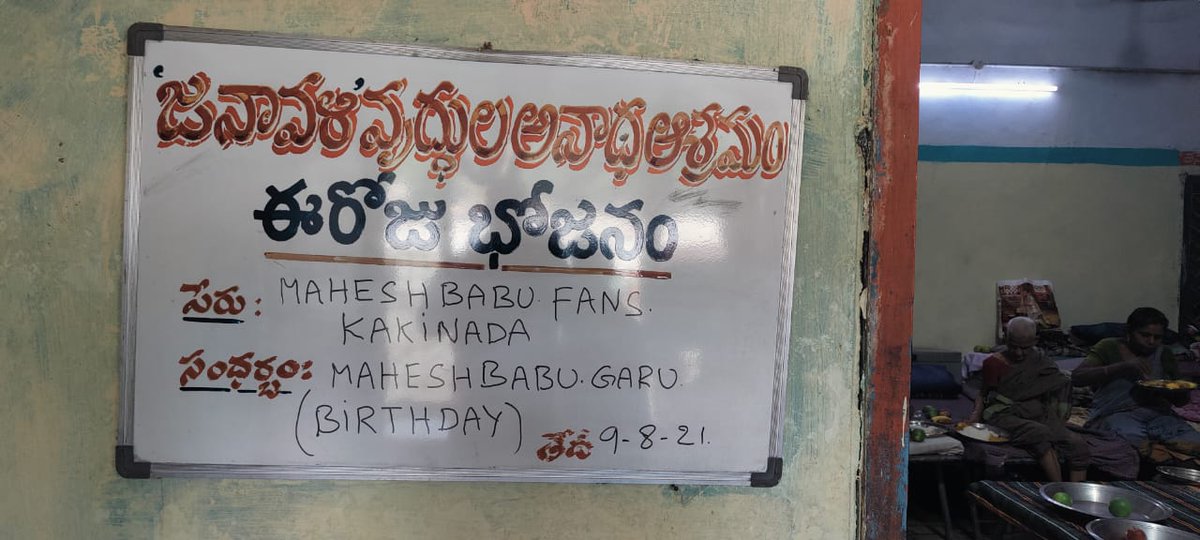 'జనావళి' వృద్ధుల అనాధ ఆశ్రమం
ఈరోజు భోజనం
పేరు: MAHESH BABU. FANS.
KAKINADA
సందర్భం: MAHESH BABU. GARU.
(BIRTHDAY) తేది 9-8-21.